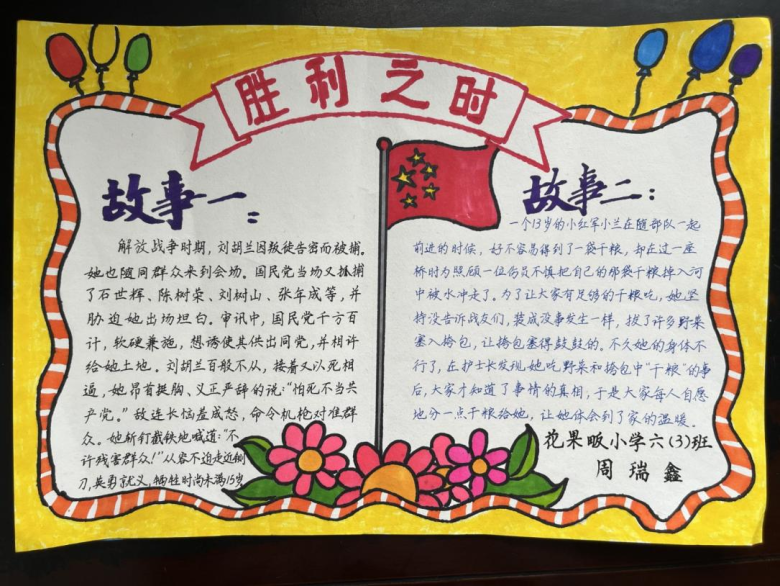 胜利之时
故事一：
解放战争时期，刘胡兰因叛徒告密而被捕。
她也随同群众来到会场。国民党当场又抓捕
了石世辉、陈树荣、刘树山、张年成等，并
胁迫她出场坦白。审讯中，国民党千方百
计，软硬兼施，想诱使其供出同党，并相许
给她土地。刘胡兰百般不从，接着又以死相
逼，她昂首挺胸、义正严辞的说：“怕死不当共
产党。”敌连长恼羞成怒，命令机枪对准群
众。她斩钉截铁地喊道：“不
许残害群众！”从容不迫走近铡
刀，英勇就义，牺牲时尚未满15岁
故事二：
一个13岁的小红军小兰在随部队一起
前进的时候，好不容易得到了一袋干粮，却在过一座
桥时为照顾一位伤员不慎把自己的那袋干粮掉入河
中被水冲走了。为了让大家有足够的干粮吃，她坚
持没告诉战友们，装成没事发生一样，拔了许多野菜
塞入挎包，让挎包塞得鼓鼓的。不久她的身体不
行了，在护士长发现她吃野菜和挎包中“干粮”的事
后，大家才知道了事情的真相，于是大家每人自愿
地分一点干粮给她，让她体会到了家的温暖。
花果畈小学六(3)班
周瑞鑫